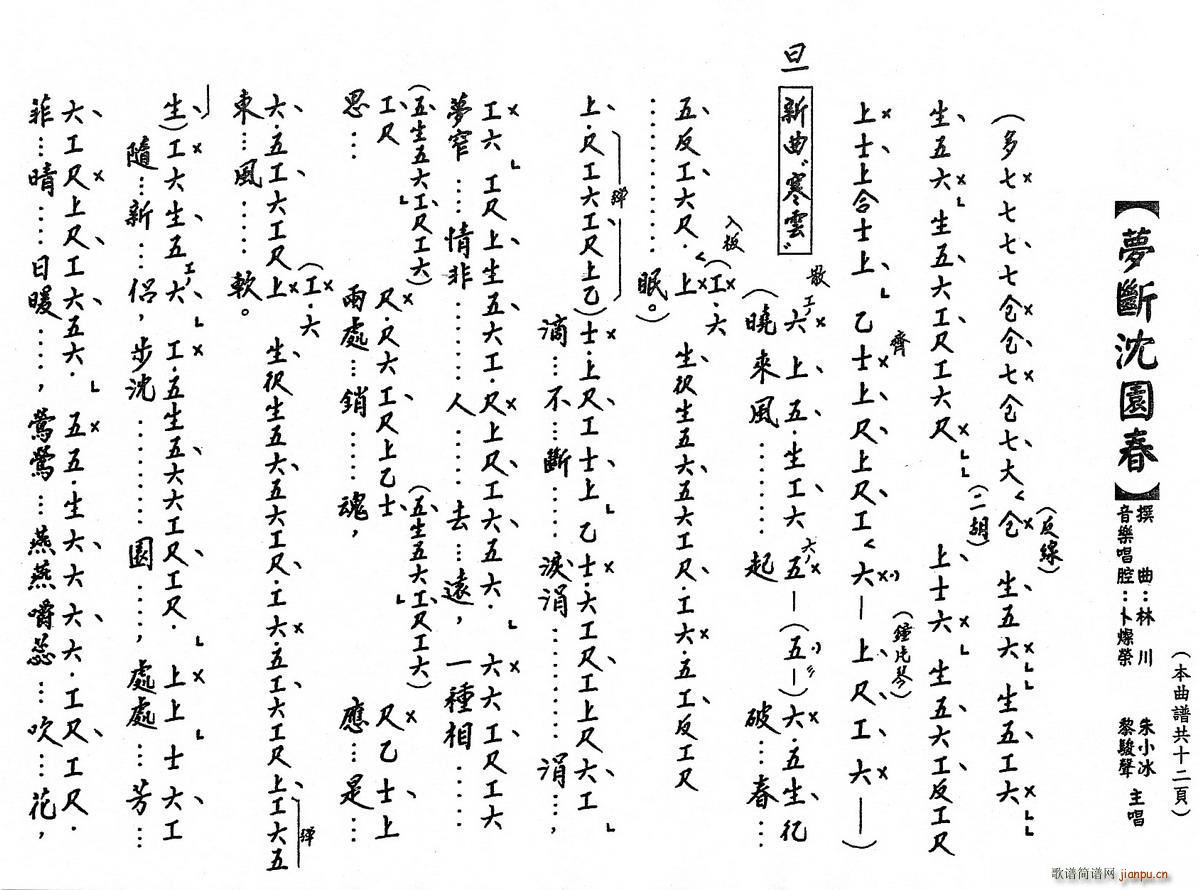 【夢斷沈園春】
撰曲：林川
音樂唱腔：卜燦榮
朱小冰
黎駿聲 主唱
（本曲譜共十二頁）
（反線）
（多七七七七仓仓七仓七大〈仓 生五六 生五工六
生五六 生五六工尺工六尺 （二胡） 上士六 生五六工反工尺
上士上合士上 乙士上尺上尺工〈六—上尺工六—）
齊
（鐘片琴）
旦 新曲“寒雲”
散 工六上五·生工六五—（五—）六·五生伬
（曉來風………起 破…春…
入板
五反工六尺·〈上（工·六 生伬生五六五六工尺·工六·五工反工尺
………眠。）
上·尺工六工尺上乙）士·上尺工士上 乙士·六工尺工上尺六工
彈
滴…不…斷 淚涓………涓…，
工六 工尺上生五六工·尺上尺工六五六· 六六工尺工六
夢窄…情非………人……去…遠，一種相……
（五生五六工尺工六）
工尺 尺·尺六工尺上乙士（五生五六工尺工六）尺乙士上
思… 兩處…銷…魂， 應…是…
六·五工六工尺上（工·六 生伬生五六五六工尺·工六·五工六工尺上工六五
東…風……軟。
彈
生）工六生五六 工·五生五六六工尺工尺· 上上士六工
隨…新…侶，步沈………園…，處處…芳…
六工尺上尺工六五六· 五五·生六六六六·工尺工尺·
菲…晴……日暖……，鶯鶯…燕燕嚼蕊…吹…花，
歌谱简谱网 jianpu.cn